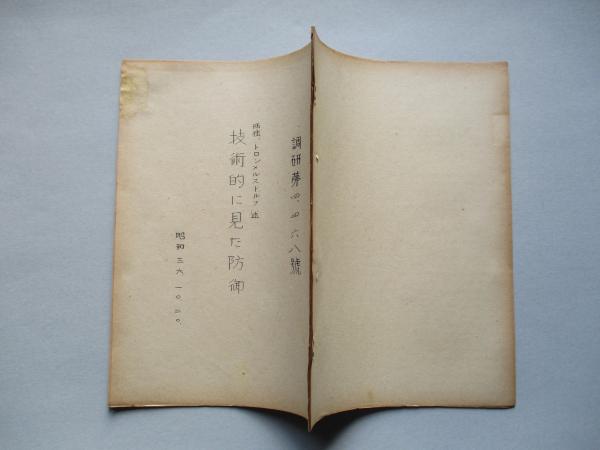 調研夢四、四六八號
西独、トロンメルストルフ 述
技術的に見た防御
昭和三六、一〇、二〇